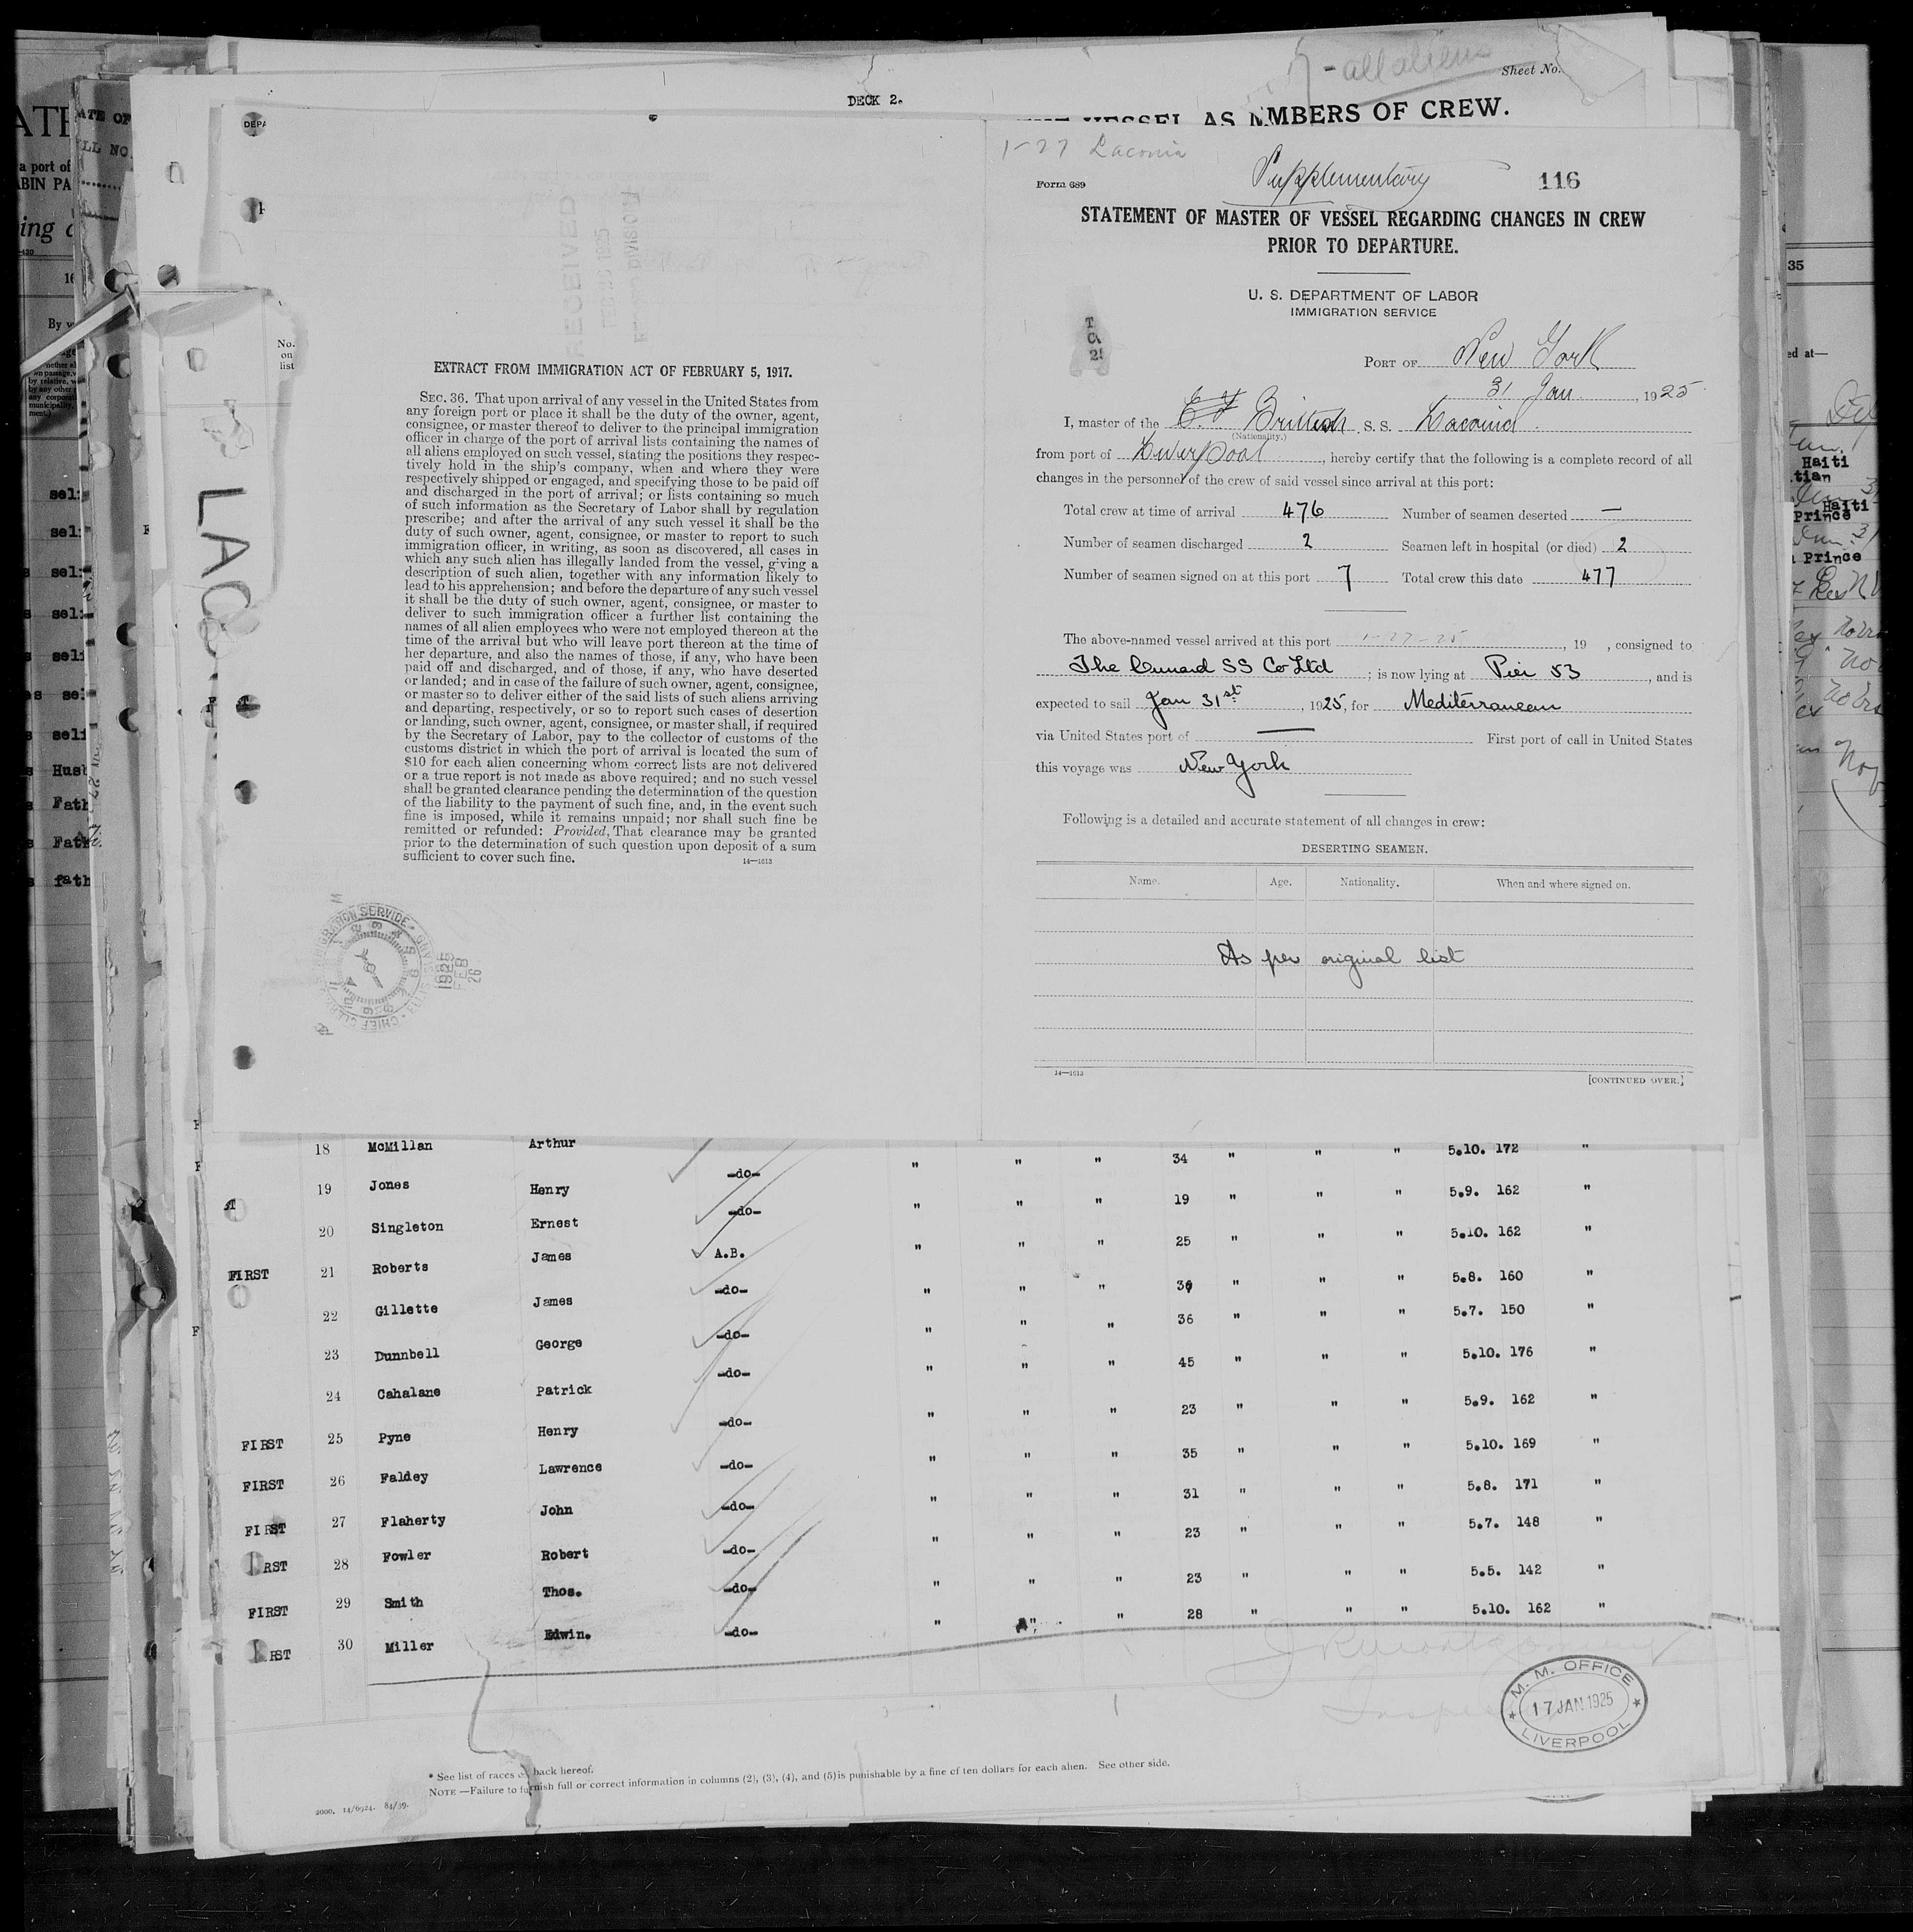 - all aliens
Sheet No.
DECK 2.
AS MEMBERS OF CREW.
EXTRACT FROM IMMIGRATION ACT OF FEBRUARY 5, 1917.
SEC. 36. That upon arrival of any vessel in the United States from
any foreign port or place it shall be the duty of the owner, agent,
consignee, or master thereof to deliver to the principal immigration
officer in charge of the port of arrival lists containing the names of
all aliens employed on such vessel, stating the positions they respec-
tively hold in the ship's company, when and where they were
respectively shipped or engaged, and specifying those to be paid off
and discharged in the port of arrival; or lists containing so much
of such information as the Secretary of Labor shall by regulation
prescribe; and after the arrival of any such vessel it shall be the
duty of such owner, agent, consignee, or master to report to such
immigration officer, in writing, as soon as discovered, all cases in
which any such alien has illegally landed from the vessel, giving a
description of such alien, together with any information likely to
lead to his apprehension; and before the departure of any such vessel
it shall be the duty of such owner, agent, consignee, or master to
deliver to such immigration officer a further list containing the
names of all alien employees who were not employed thereon at the
time of the arrival but who will leave port thereon at the time of
her departure, and also the names of those, if any, who have been
paid off and discharged, and of those, if any, who have deserted
or landed; and in case of the failure of such owner, agent, consignee,
or master so to deliver either of the said lists of such aliens arriving
and departing, respectively, or so to report such cases of desertion
or landing, such owner, agent, consignee, or master shall, if required
by the Secretary of Labor, pay to the collector of customs of the
customs district in which the port of arrival is located the sum of
$10 for each alien concerning whom correct lists are not delivered
or a true report is not made as above required; and no such vessel
shall be granted clearance pending the determination of the question
of the liability to the payment of such fine, and, in the event such
fine is imposed, while it remains unpaid; nor shall such fine be
remitted or refunded: Provided, That clearance may be granted
prior to the determination of such question upon deposit of a sum
sufficient to cover such fine.
14—1613
1925
FEB
26
1-27 Laconia
Form 689
Supplementary
116
STATEMENT OF MASTER OF VESSEL REGARDING CHANGES IN CREW
PRIOR TO DEPARTURE.
U. S. DEPARTMENT OF LABOR
IMMIGRATION SERVICE
PORT OF New York
31 Jan., 1925.
I, master of the British S. S. Laconia
(Nationality.)
from port of Liverpool, hereby certify that the following is a complete record of all
changes in the personnel of the crew of said vessel since arrival at this port:
Total crew at time of arrival 476 Number of seamen deserted —
Number of seamen discharged 2 Seamen left in hospital (or died) 2
Number of seamen signed on at this port 7 Total crew this date 477
The above-named vessel arrived at this port 1-27-25, 19 , consigned to
The Cunard SS Co Ltd; is now lying at Pier 53, and is
expected to sail Jan 31st, 1925, for Mediterranean
via United States port of — First port of call in United States
this voyage was New York
Following is a detailed and accurate statement of all changes in crew:
DESERTING SEAMEN.
Name. Age. Nationality. When and where signed on.
As per original list
14—1613
[CONTINUED OVER.]
18 McMillan Arthur -do- " " " 34 " " " 5.10. 172 "
19 Jones Henry -do- " " " 19 " " " 5.9. 162 "
20 Singleton Ernest A.B. " " " 25 " " " 5.10. 162 "
FIRST 21 Roberts James -do- " " " 30 " " " 5.8. 160 "
22 Gillette James -do- " " " 36 " " " 5.7. 150 "
23 Dunnbell George -do- " " " 45 " " " 5.10. 176 "
24 Cahalane Patrick -do- " " " 23 " " " 5.9. 162 "
FIRST 25 Pyne Henry -do- " " " 35 " " " 5.10. 169 "
FIRST 26 Faldey Lawrence -do- " " " 31 " " " 5.8. 171 "
FIRST 27 Flaherty John -do- " " " 23 " " " 5.7. 148 "
RST 28 Fowler Robert -do- " " " 23 " " " 5.5. 142 "
FIRST 29 Smith Thos. -do- " " " 28 " " " 5.10. 162 "
RST 30 Miller Edwin. -do-
M. M. OFFICE
17 JAN 1925
LIVERPOOL
* See list of races on back hereof.
NOTE —Failure to furnish full or correct information in columns (2), (3), (4), and (5) is punishable by a fine of ten dollars for each alien. See other side.
2000. 14/6924. 84/39.
No.
on
list
LACO
Haiti
Haiti
Prince
Prince